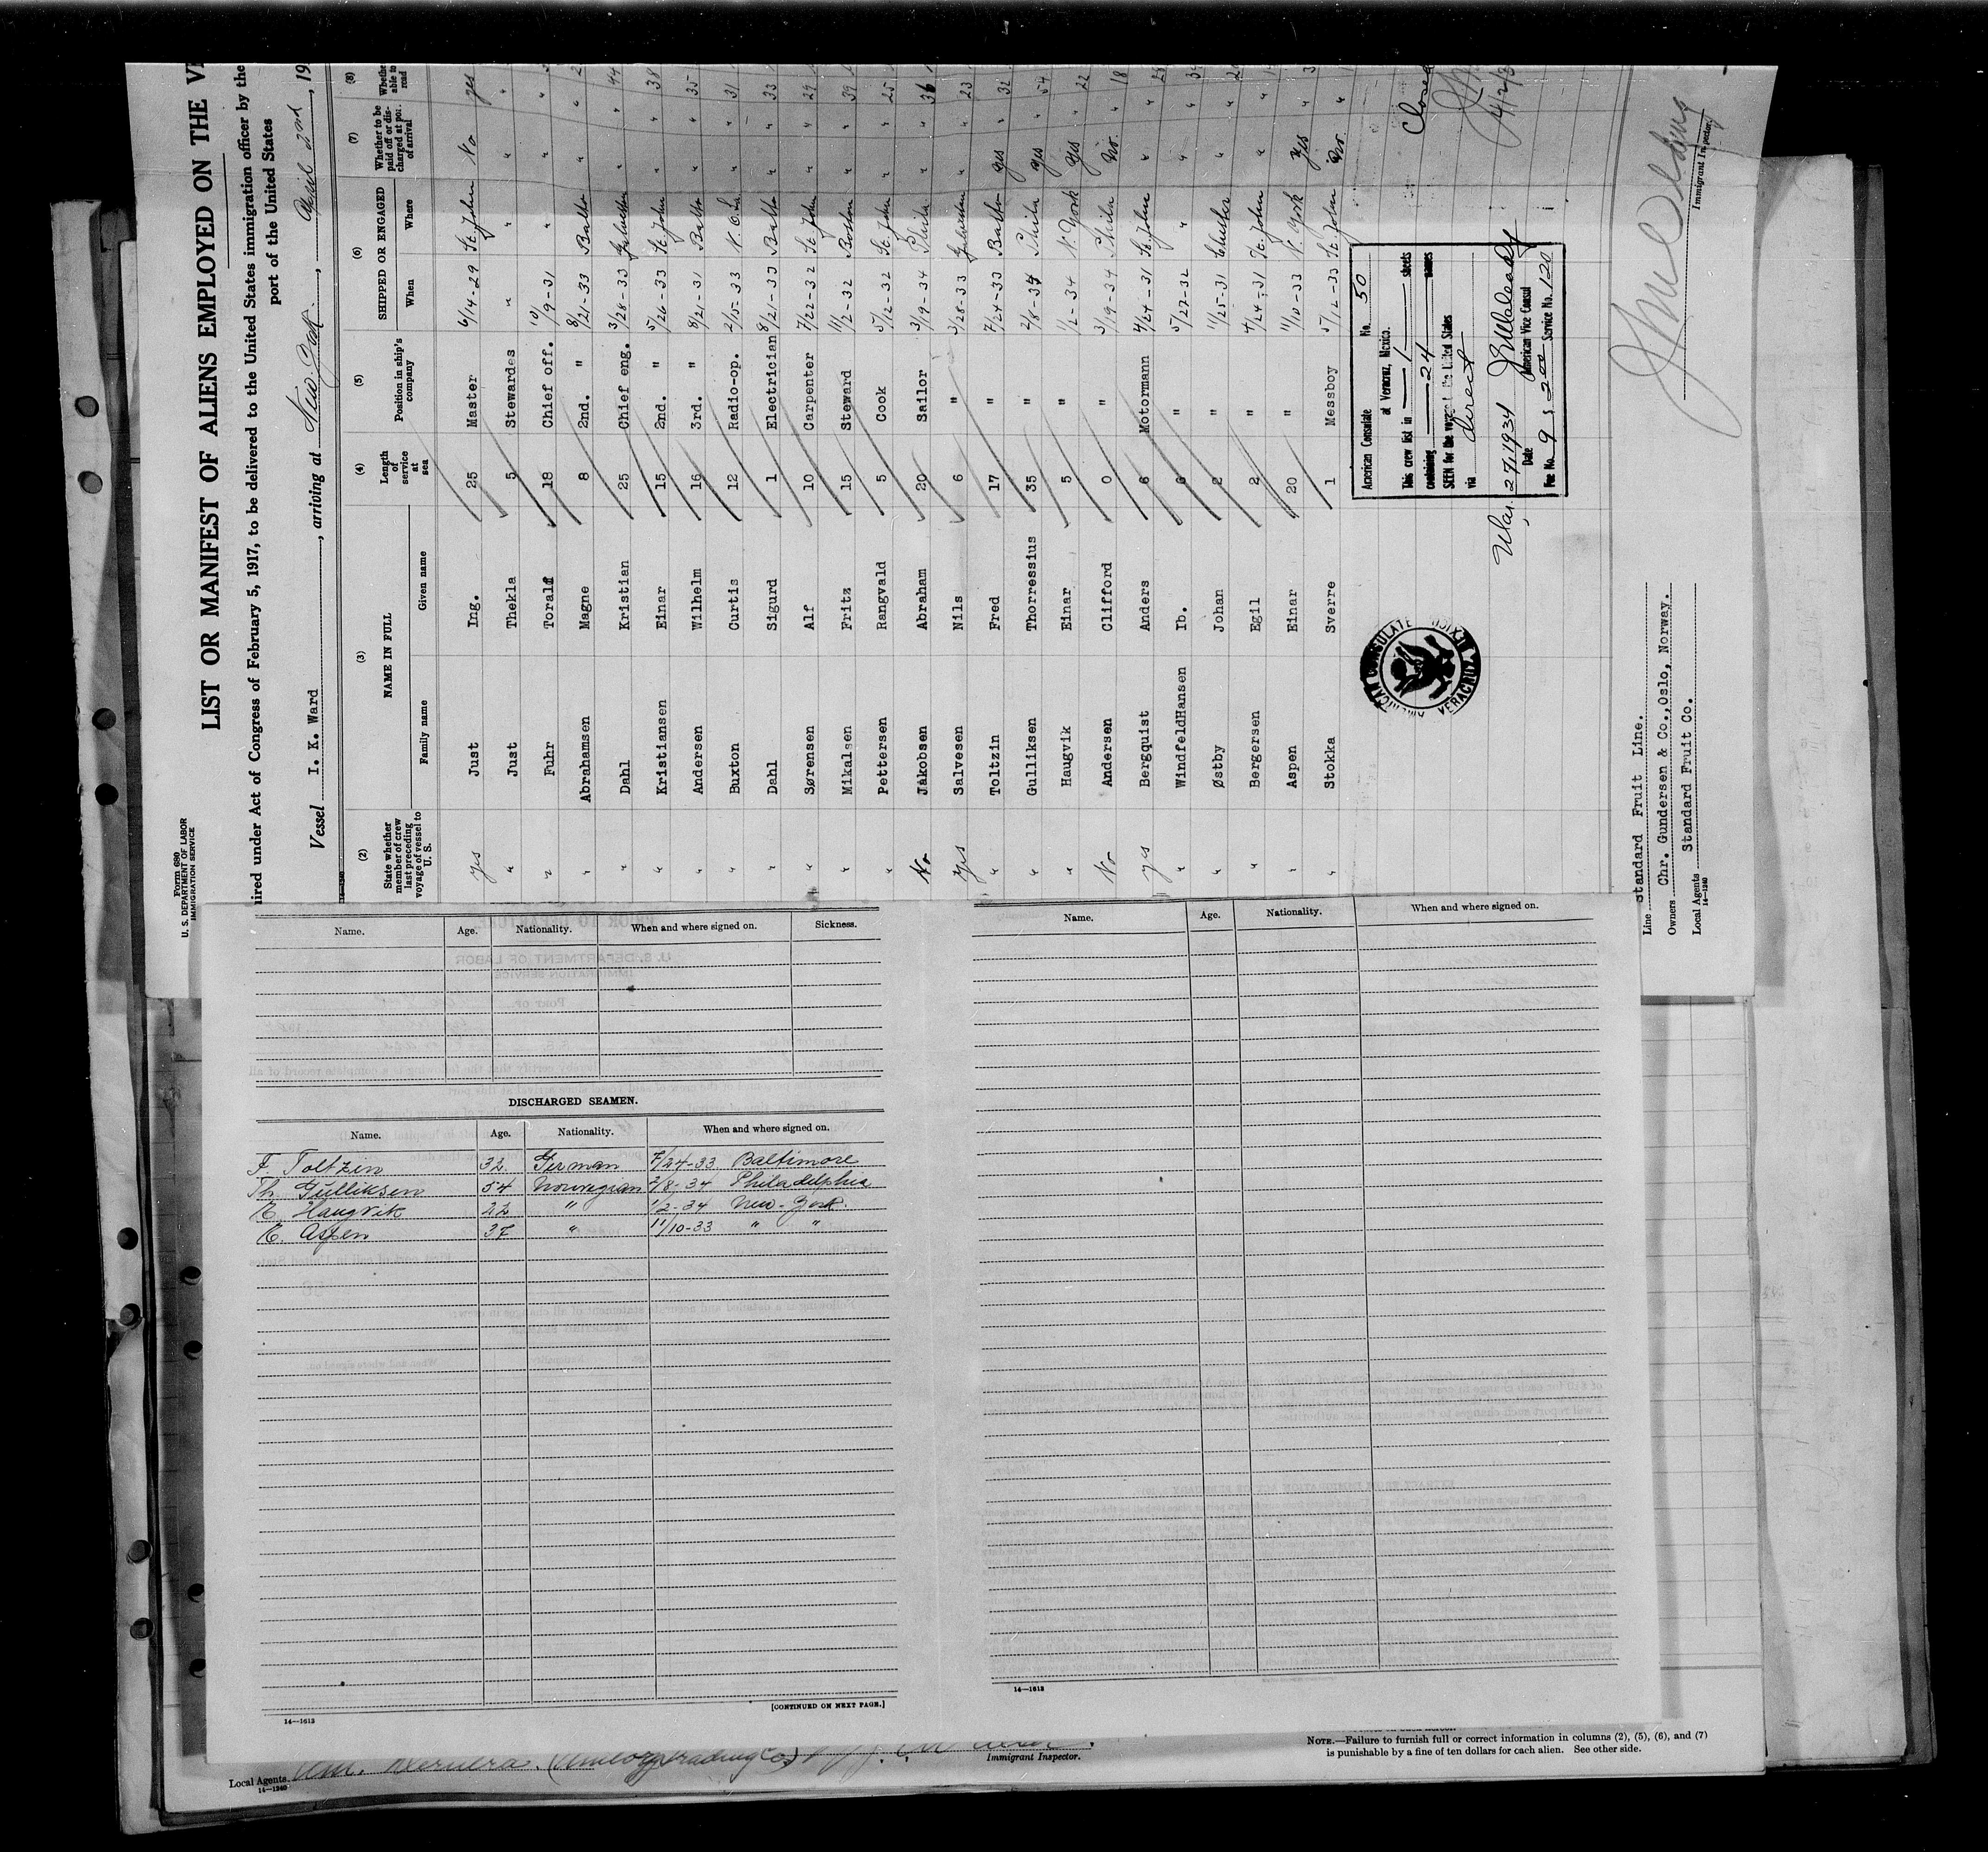 Form 680
U. S. DEPARTMENT OF LABOR
IMMIGRATION SERVICE
LIST OR MANIFEST OF ALIENS EMPLOYED ON THE
ired under Act of Congress of February 5, 1917, to be delivered to the United States immigration officer by the
port of the United States
Vessel I. K. Ward, arriving at New York, April 2nd, 19
(2) (3) (4) (5) (6) (7) (8)
State whether member of crew last preceding voyage of vessel to U. S.
NAME IN FULL
Family name Given name
Length of service at sea
Position in ship's company
SHIPPED OR ENGAGED
When Where
Whether to be paid off or discharged at port of arrival
yes Just Ing. 25 Master 6/14-29 St. John No yes
" Just Thekla 5 Stewardes " " " "
" Fuhr Toralf 18 Chief off. 10/9-31 " " "
" Abrahamsen Magne 8 2nd. " 8/21-33 Balto " "
" Dahl Kristian 25 Chief eng. 3/28-33 Galveston " " 44
" Kristiansen Einar 15 2nd. " 5/26-33 St. John " " 38
" Andersen Wilhelm 16 3rd. " 8/21-31 Balto " " 35
" Buxton Curtis 12 Radio-op. 2/15-33 N. O. La " " 31
" Dahl Sigurd 1 Electrician 8/21-33 Balto " " 33
" Sørensen Alf 10 Carpenter 7/22-32 St. John " " 29
" Mikalsen Fritz 15 Steward 11/2-32 Boston " " 39
" Pettersen Rangvald 5 Cook 5/12-32 St. John " " 25
No Jakobsen Abraham 20 Sailor 3/19-34 Phila " " 36
Yes Salvesen Nils 6 " 3/28-33 Galveston " " 23
" Toltzin Fred 17 " 7/24-33 Balto yes " 32
" Gulliksen Thorressius 35 " 2/8-34 Phila yes " 54
" Haugvik Einar 5 " 1/2-34 N. York yes " 22
No Andersen Clifford 0 " 3/19-34 Phila No. " 18
yes Bergquist Anders 6 Motormann 4/24-31 St. John " "
" WindfeldHansen Ib. 6 " 5/27-32 " " "
" Østby Johan 2 " 11/25-31 Chester " "
" Bergersen Egil 2 " 4/24-31 St. John " "
" Aspen Einar 20 " 11/10-33 N. York Yes "
" Stokka Sverre 1 Messboy 5/12-33 St John No. "
Closed
4/2/3
American Consulate No. 50
at Veracruz, Mexico.
This crew list in 1 sheets
containing 24 names
SEEN for the voyage to the United States
via direct
Mar. 27, 1934
Date American Vice Consul
Fee No. 9 $ 2.00 Service No. 120
AMERICAN CONSULATE
VERACRUZ MEXICO
Immigrant Inspector
Line Standard Fruit Line.
Owners Chr. Gundersen & Co., Oslo, Norway.
Local Agents Standard Fruit Co.
14—1240
Name. Age. Nationality. When and where signed on. Sickness.
DISCHARGED SEAMEN.
Name. Age. Nationality. When and where signed on.
F. Toltzin 32. German 7/24-33 Baltimore
Th. Gulliksen 54 Norwegian 2/8-34 Philadelphia
E. Haugvik 22 " 1/2-34 New-York.
E. Aspen 37 " 11/10-33 " "
[CONTINUED ON NEXT PAGE.]
14—1613
Name. Age. Nationality. When and where signed on.
14—1613
Local Agents
14—1240
Immigrant Inspector.
NOTE.—Failure to furnish full or correct information in columns (2), (5), (6), and (7)
is punishable by a fine of ten dollars for each alien. See other side.